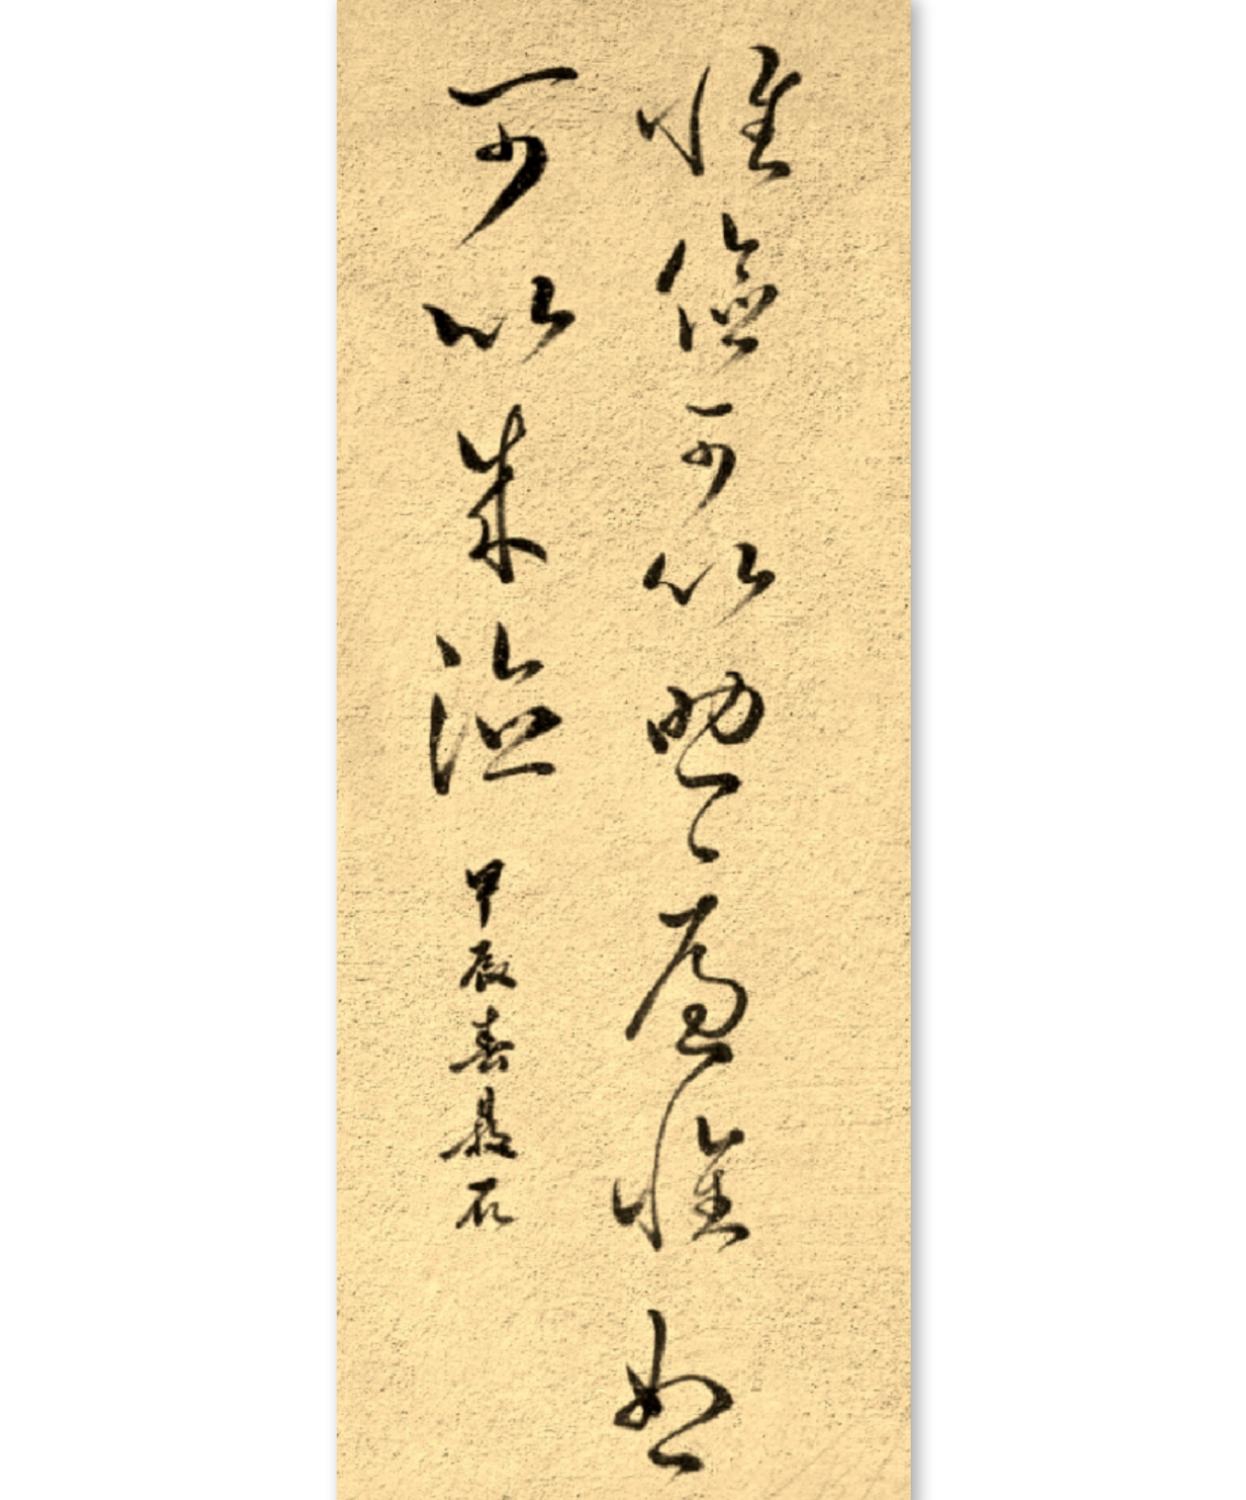 惟俭可以助廉惟恕
可以成德 甲辰春 石